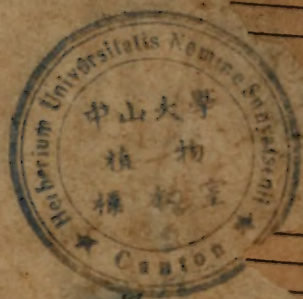 Herbarium Universitatis Nomine Sunyatsenii
中山大學
植物
標本室
Canton